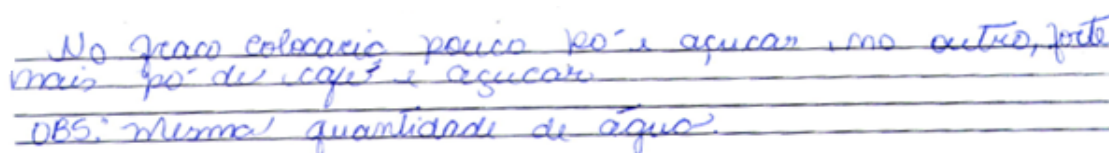 No fraco colocaria pouco pó e açucar, no outro, forte
mais pó de café e açucar
OBS: Mesma quantidade de água.